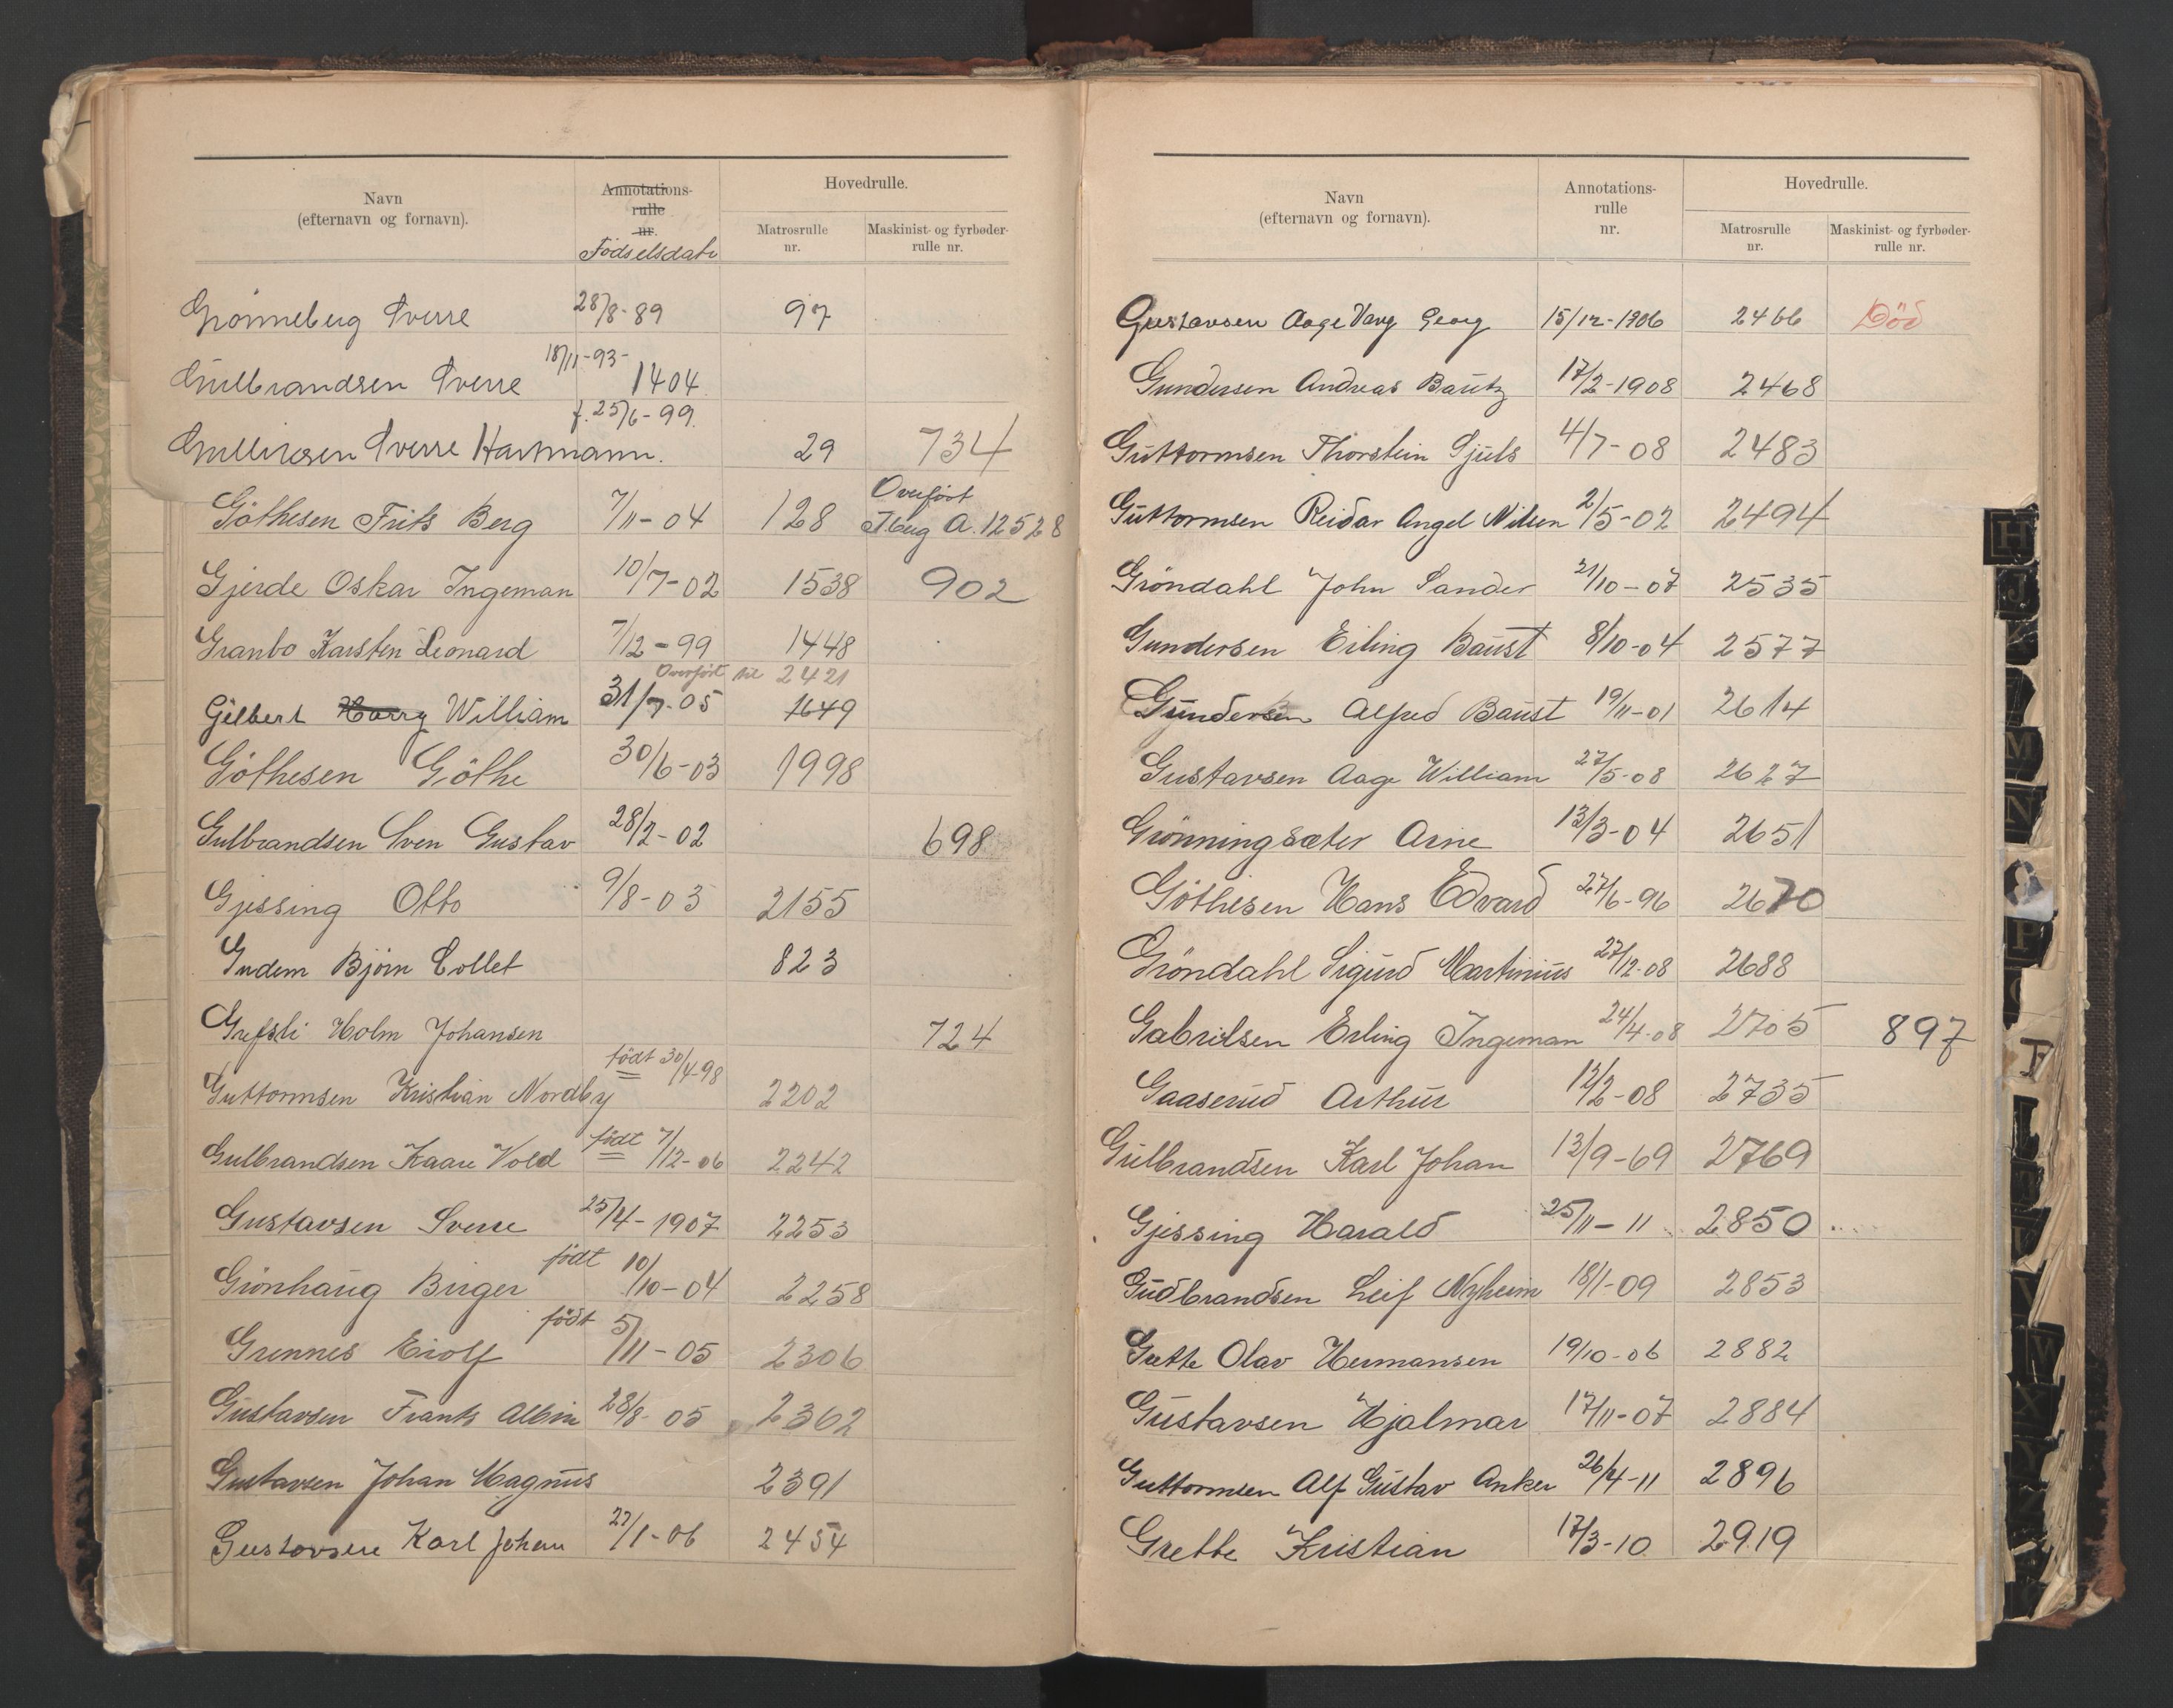 Navn
(efternavn og fornavn).
Annotations-
rulle
nr.
Födselsdato
Hovedrulle.
Matrosrulle
nr.
Maskinist- og fyrbøder-
rulle nr.
Grönneberg Sverre 28/8-89 97
18/11-93-
Gulbrandsen Sverre 1404
f. 25/6-99.
Gulliksen Sverre Hartmann. 29 734
Overfört
Göthesen Frits Berg 7/11-04 128 A. 12528
Gjerde Oskar Ingeman 10/7-02 1538 902
Granbo Karsten Leonard 7/12-99 1448
Overfört til 2421
Gilbert Harry William 31/7-05 1649
Göthesen Göthe 30/6-03 1998
Gulbrandsen Sven Gustav 28/2-02 698
Gjessing Otto 9/8-03 2155
Gudem Björn Collet 823
Grefsli Holm Johansen 724
födt 30/4-98
Guttormsen Kristian Nordby 2202
Gulbrandsen Kaare Vold födt 7/12-06 2242
Gustavsen Sverre 25/4-1907 2253
Grönhaug Birger födt 10/10-04 2258
Grennes Eiolf födt 5/11-05 2306
Gustavsen Frants Albin 28/8-05 2362
Gustavsen Johan Magnus 2391
Gustavsen Karl Johan 27/1-06 2454
Navn
(efternavn og fornavn).
Annotations-
rulle
nr.
Hovedrulle.
Matrosrulle
nr.
Maskinist- og fyrbøder-
rulle nr.
Gustavsen Aage Vang Georg 15/12-1906 2466 Död
Gundersen Andreas Bautz 17/2-1908 2468
Guttormsen Thorstein Sjuls 4/7-08 2483
Guttormsen Reidar Angel Nilsen 2/5-02 2494
Gröndahl John Sander 21/10-07 2535
Gundersen Erling Baust 8/10-04 2577
Gundersen Alfred Baust 19/11-01 2614
Gustavsen Aage William 27/5-08 2627
Grönningsæter Arne 13/3-04 2651
Göthesen Hans Edvard 27/6-96 2670
Gröndahl Sigurd Martinius 27/12-08 2688
Gabrielsen Erling Ingeman 24/4-08 2705 897
Gaaserud Arthur 12/2-08 2735
Gulbrandsen Karl Johan 13/9-69 2769
Gjessing Harald 25/11-11 2850
Gudbrandsen Leif Nyheim 18/1-09 2853
Grette Olav Hermansen 19/10-06 2882
Gustavsen Hjalmar 17/11-07 2884
Guttormsen Alf Gustav Anker 26/4-11 2896
Grette Kristian 17/3-10 2919
H
J
M
N
P
T
W
X